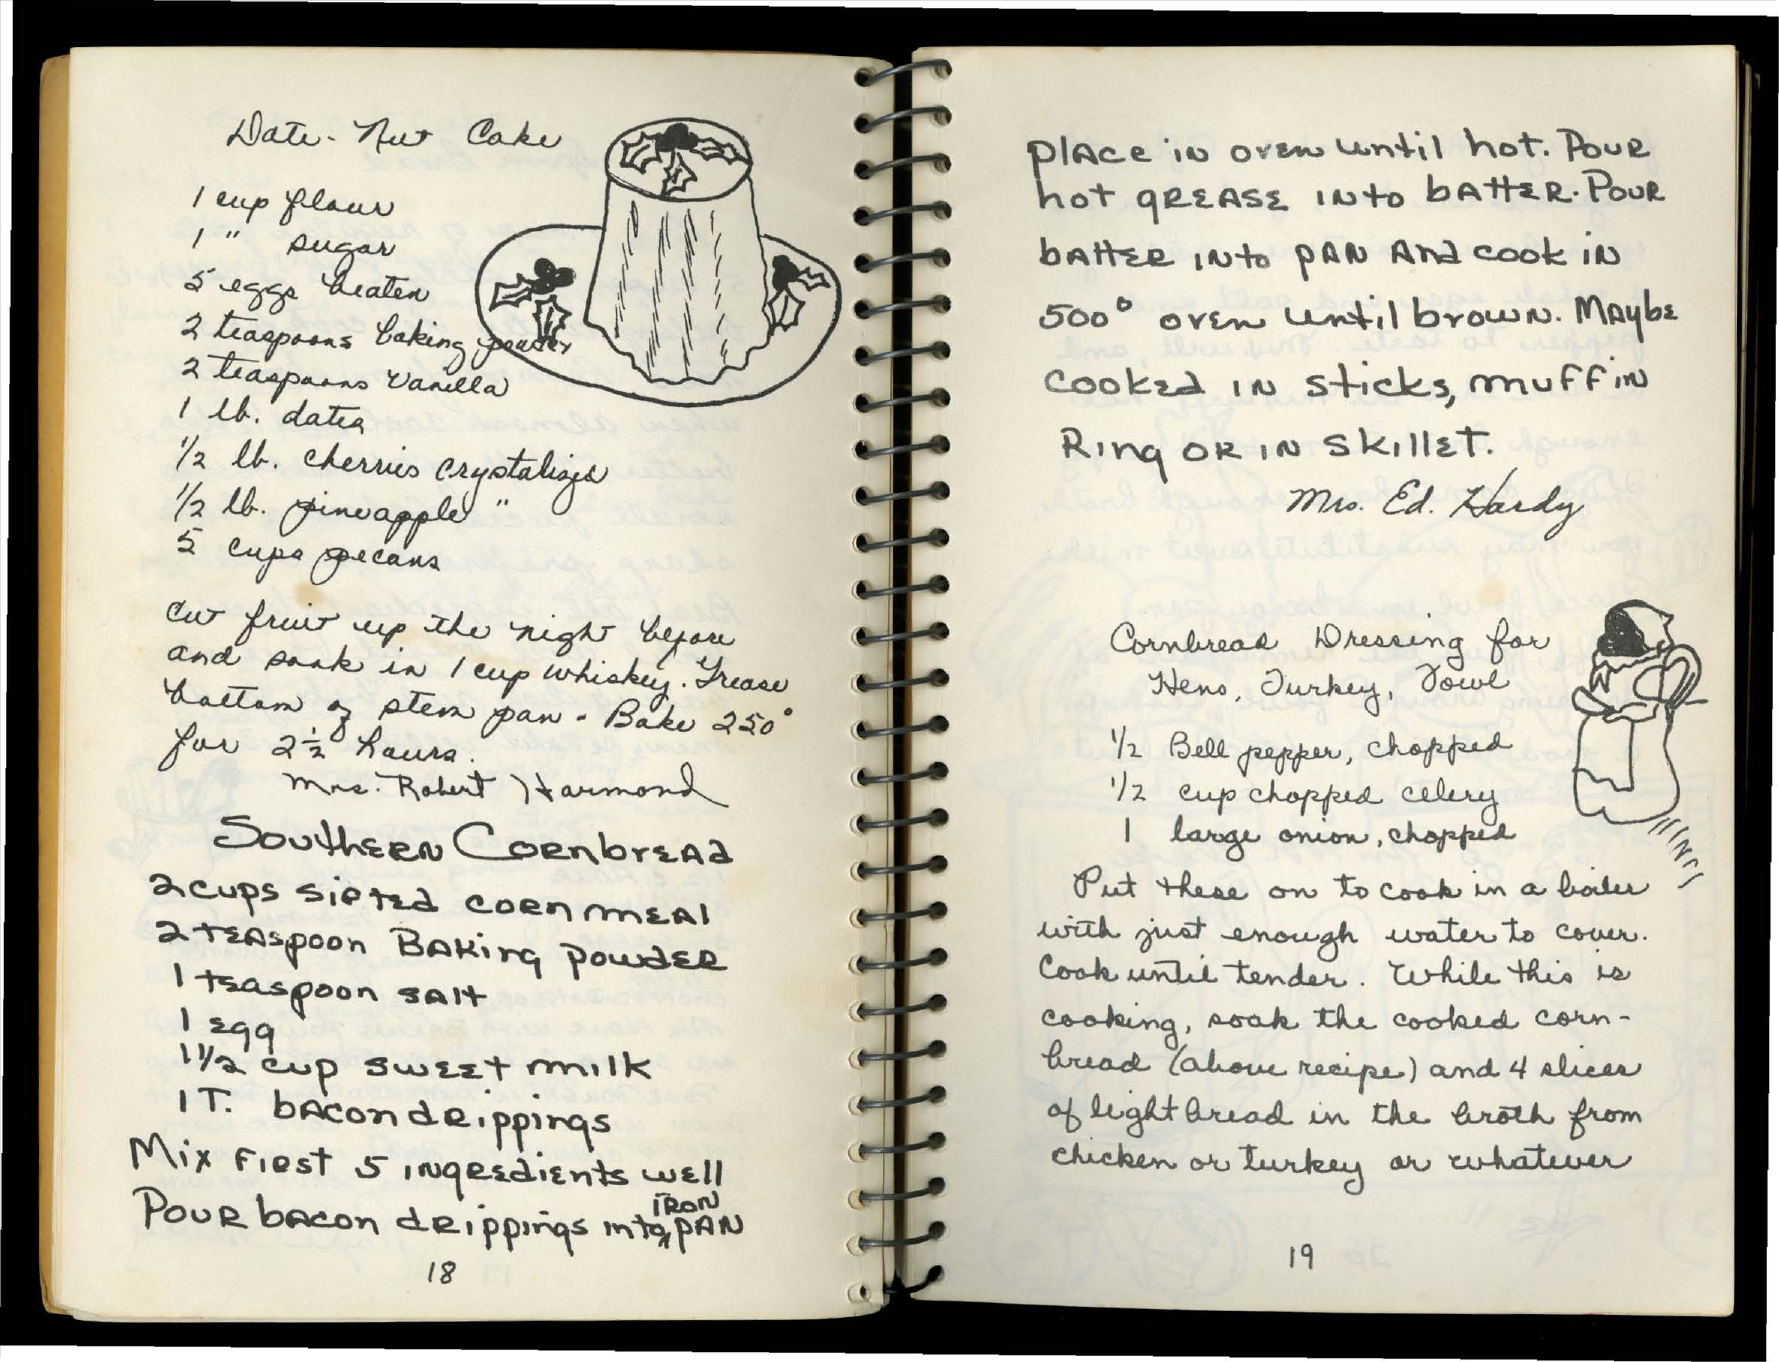 Date-Nut Cake
1 cup flour
1 " sugar
5 eggs beaten
2 teaspoons baking powder
2 teaspoons vanilla
1 lb. dates
1/2 lb. cherries crystalized
1/2 lb. pineapple "
5 cups pecans
Cut fruit up the night before
and soak in 1 cup whiskey. Grease
bottom of stem pan - Bake 250°
for 2 1/2 hours.
Mrs. Robert Harmond
Southern Cornbread
2 cups sifted corn meal
2 teaspoon Baking powder
1 teaspoon salt
1 egg
1 1/2 cup sweet milk
1 T. bacon drippings
Mix first 5 ingredients well
Pour bacon drippings into iron pan
18
place in oven until hot. Pour
hot grease into batter. Pour
batter into pan and cook in
500° oven until brown. Maybe
cooked in sticks, muffin
Ring or in skillet.
Mrs. Ed. Hardy
Cornbread Dressing for
Hens, Turkey, Fowl
1/2 Bell pepper, chopped
1/2 cup chopped celery
1 large onion, chopped
Put these on to cook in a boiler
with just enough water to cover.
Cook until tender. While this is
cooking, soak the cooked corn-
bread (above recipe) and 4 slices
of light bread in the broth from
chicken or turkey or whatever
19